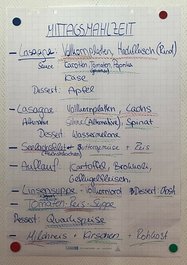 MITTAGSMAHLZEIT
- Lasagne Vollkornplatten, Hackfleisch (Rind)
Sauce Karotten, Tomaten, Paprika
Käse
Dessert: Apfel
- Lasagne Vollkornplatten, Lachs
Alternative Sauce (Alternative), Spinat
Dessert: Wassermelone
- Seelachsfilet + Buttergemüse + Reis
- Auflauf: Kartoffel, Brokkoli,
Geflügelfleisch,
- Linsensuppe - Vollkornbrot Dessert: Obst
- Tomaten-Reis-Suppe
Dessert: Quarkspeise
- Milchreis + Kirschen + Rohkost